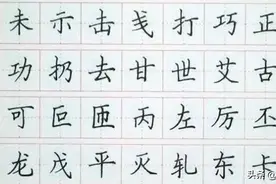 未示击戋打巧正
功扔去甘世艾古
可叵匝丙左厉丕
龙戊平灭轧东卡